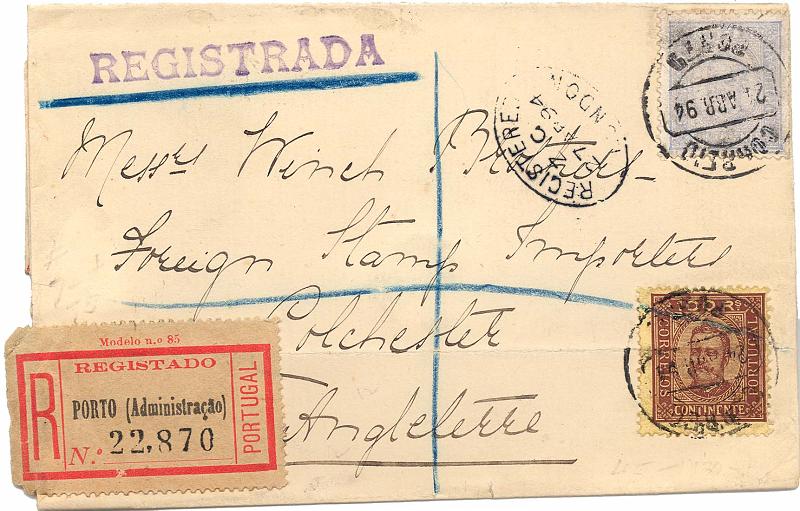 REGISTRADA
REGISTERED
LONDON
27 AP 94
PORTO
2 ABR. 94
CORREIO
Messrs Winch Brothers
Foreign Stamp Importers
Colchester
Angleterre
100 RS
CORREIOS
PORTUGAL
CONTINENTE
Modelo n.º 85
REGISTADO
R
PORTO (Administração)
N.º 22,870
PORTUGAL